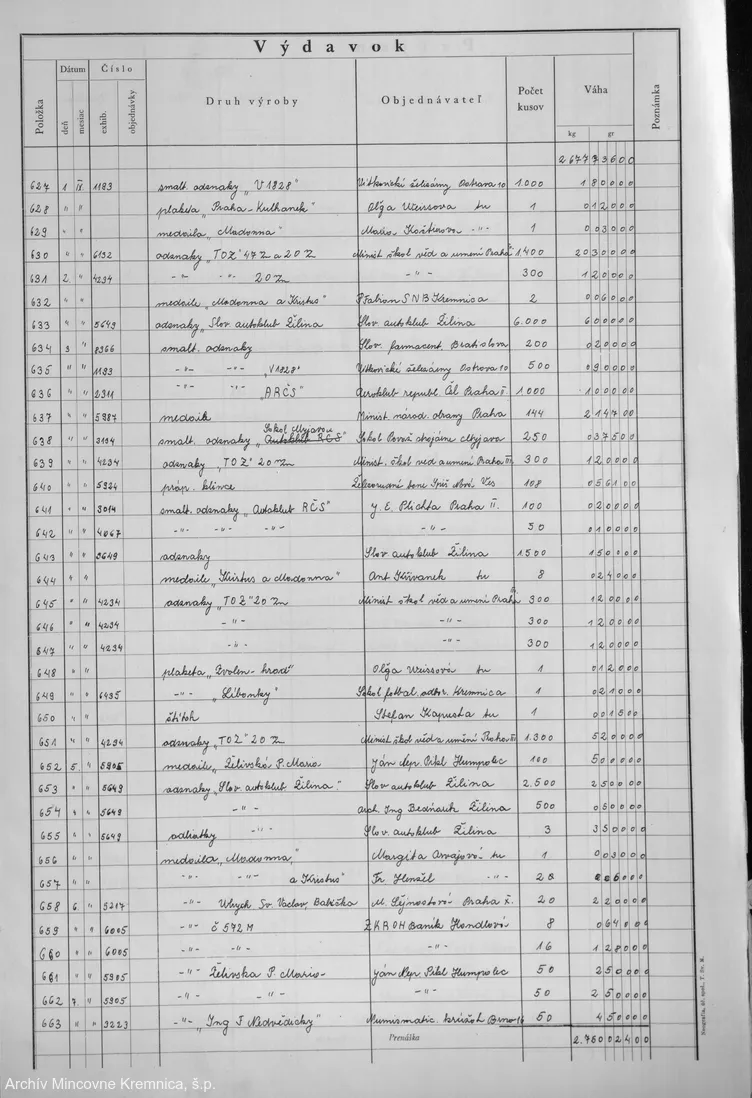 Výdavok
Položka Dátum Číslo Druh výroby Objednávateľ Počet kusov Váha Poznámka
deň mesiac exhib. objednávky kg gr
2677 73600
627 1 IX. 1183 smalt. odznaky "V1828" Vítkovické železárny Ostrava 10 1.000 180000
628 " " plaketa "Praha-Kulhanek" Oľga Weissova tu 1 012000
629 " " medaila "Madonna" Mario -"- 1 003000
630 " " 6192 odznaky "TOZ" 47Z a 20Z Minist škol věd a umení Praha 1.400 2030000
631 2. " 4234 -"- -"- 20Zn -"- 300 120000
632 " " medaile "Madonna a Kristus" Fabian SNB Kremnica 2 006000
633 " " 5649 odznaky Slov autoklub Žilina Slov autoklub Žilina 6.000 600000
634 3 " 8366 smalt. odznaky Slov. farmacent. Bratislava 200 020000
635 " " 1183 -"- -"- "V1828" Vítkovické železárny Ostrava 10 500 090000
636 " " 2311 -"- -"- "ARČS" Aeroklub republ. Čsl Praha II 1000 100000
637 " " 5987 medaile Minist. národ. obrany Praha 144 214700
638 " " 3194 smalt. odznaky "Autoklub RČS" Sokol Myjavou Sokol Považ strojárne Myjava 250 037500
639 " " 4234 odznaky "TOZ" 20Zn Minist. škol věd a umení Praha III. 300 120000
640 " " 5924 práp. klince Železorudné bane Spiš Nová Ves 108 056100
641 " " 3014 smalt. odznaky "Autoklub RČS" J. E. Plichta Praha II. 100 020000
642 " " 4067 -"- -"- -"- -"- 50 010000
643 " " 5649 odznaky Slov autoklub Žilina 1500 150000
644 " " medaile "Kristus a Madonna" Ant Křivanek tu 8 024000
645 " " 4234 odznaky "TOZ" 20Zn Minist škol věd a umení Praha 300 120000
646 " " 4234 -"- -"- 300 120000
647 " " 4234 -"- -"- 300 120000
648 " " plaketa "Zvolen-hrad" Oľga Weissová tu 1 012000
649 " " 6435 -"- "Líbonky" Sokol fotbal. odbor. Kremnica 1 021000
650 " " štítok Stefan Kapusta tu 1 001500
651 " " 4234 odznaky "TOZ" 20Z Minist škol věd a umění Praha III 1.300 520000
652 5. " 5905 medaile "Želivská P. Maria Ján Nep Pikl Humpolec 100 500000
653 " " 5649 odznaky "Slov. autoklub Žilina" Slov autoklub Žilina 2.500 250000
654 " " 5649 -"- arch. Ing Bednárik Žilina 500 050000
655 " " 5649 odliatky -"- Slov. autoklub Žilina 3 350000
656 " " medaila "Madonna" Margita tu 1 003000
657 " " -"- -"- a Kristus" Fr Henzel -"- 2 006000
658 6. " 5217 -"- Sv. Vaclav, Babička M. Praha X. 20 220000
659 " " 6005 -"- č 572M ZKROH Baník Handlová 8 064000
660 " " 6005 -"- -"- -"- 16 128000
661 " " 5905 -"- Želivska P Maria- Ján Nep Pikl Humpolec 50 250000
662 7 " 5905 -"- -"- -"- 50 250000
663 " " 3223 -"- "Ing F Nedvědický" Numismatic. krúžok Brno 16 50 450000
Prenáška 2.760 02400
Archív Mincovne Kremnica, š.p.